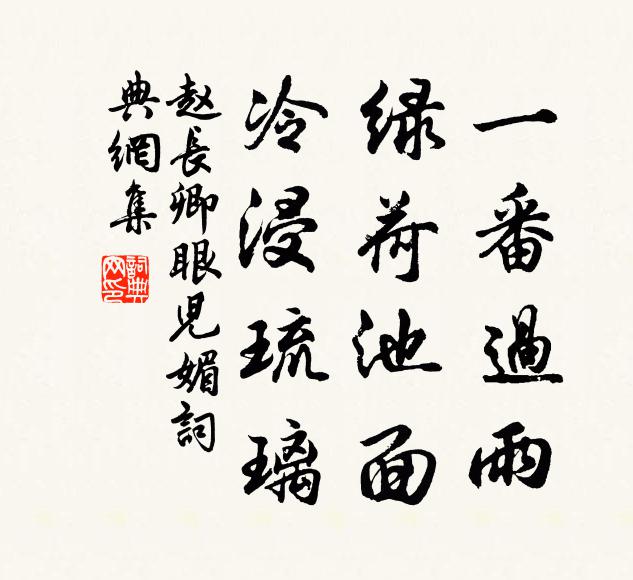 一番過雨
绿荷池面
冷浸琉璃
赵長卿眼児媚詞
典網集
詞典
网印